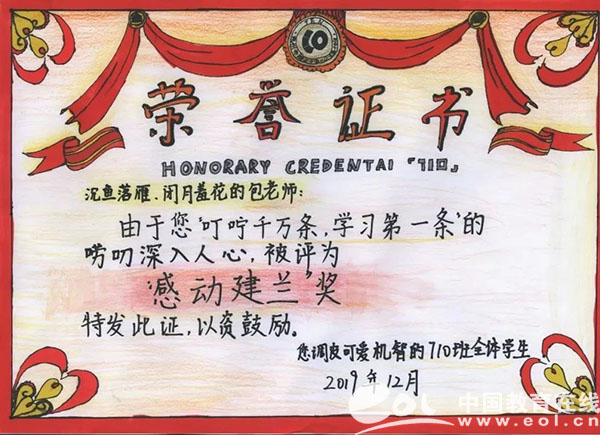 荣誉证书
HONORARY CREDENTAI「710」
沉鱼落雁、闭月羞花的包老师:
由于您"叮咛千万条,学习第一条"的
唠叨深入人心,被评为
"感动建兰"奖
特发此证,以资鼓励。
您调皮可爱机智的710班全体学生
2019年12月
中国教育在线
www.eol.cn